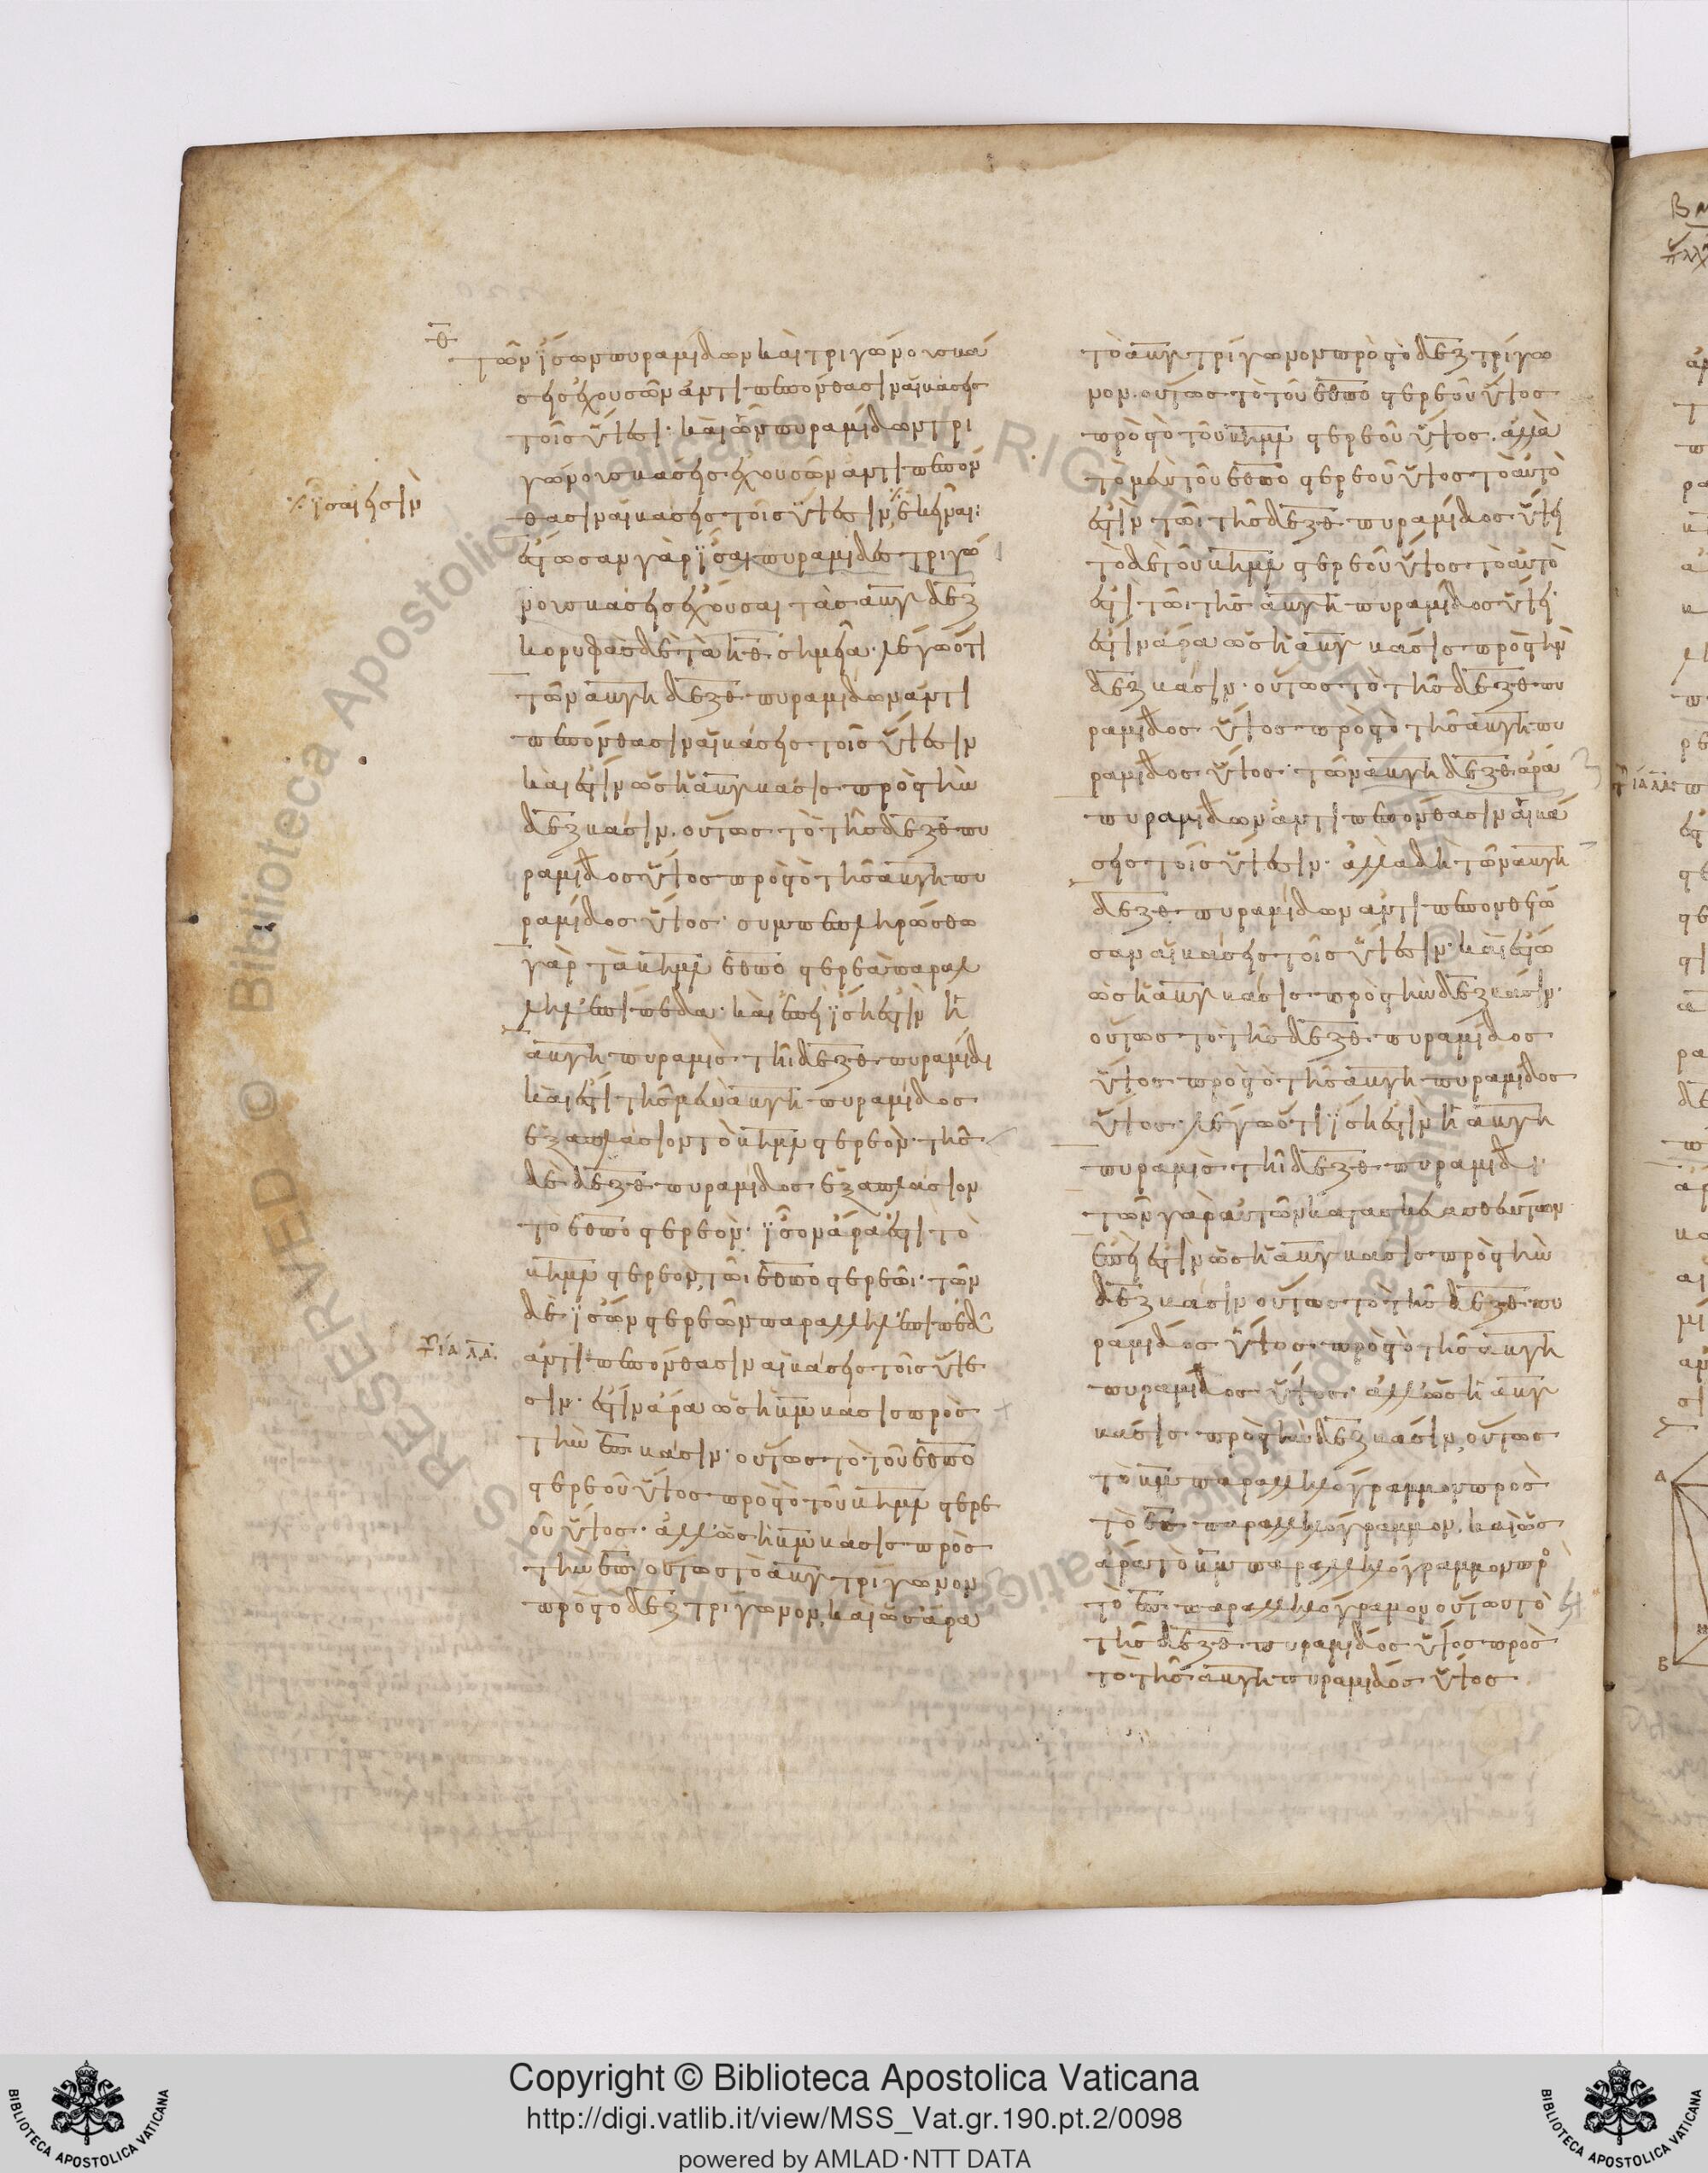 θ
τῶν ἴσων πυραμίδων καὶ τριγώνους βά
σεις ἐχουσῶν ἀντιπεπόνθασιν αἱ βάσεις
τοῖς ὕψεσι· καὶ ὧν πυραμίδων τρι
γώνους βάσεις ἐχουσῶν ἀντιπεπόν
θασιν αἱ βάσεις τοῖς ὕψεσιν ἐκεῖναι:
ἴσαι εἰσὶν
ἔστωσαν γὰρ ἴσαι πυραμίδες τριγώ
νους βάσεις ἔχουσαι τὰς αβγ δεζ
κορυφὰς δὲ τὰ η θ σημεῖα· λέγω ὅτι
τῶν αβγη δεζθ πυραμίδων ἀντι
πεπόνθασιν αἱ βάσεις τοῖς ὕψεσιν
καὶ ἐστὶν ὡς ἡ αβγ βάσις πρὸς τὴν
δεζ βάσιν. οὕτως τὸ τῆς δεζθ πυ
ραμίδος ὕψος πρὸς τὸ τῆς αβγη πυ
ραμίδος ὕψος· συμπεπληρώσθω
γὰρ τὰ βημγ εθπο στερεὰ παραλ
ληλεπίπεδα· καὶ ἐπεὶ ἴση ἐστὶν ἡ
αβγη πυραμὶς τῆι δεζθ πυραμίδι
καὶ ἐστι τῆς μὲν αβγη πυραμίδος
ἑξαπλάσιον τὸ βημγ στερεόν· τῆς
δὲ δεζθ πυραμίδος ἑξαπλάσιον
τὸ εθπο στερεόν· ἴσον ἄρα ἐστὶ τὸ
βημγ στερεὸν τῶι εθπο στερεῶι· τῶν
δὲ ἴσων στερεῶν παραλληλεπιπέδ
ια λδ
ἀντιπεπόνθασιν αἱ βάσεις τοῖς ὕψε
σιν· ἐστὶν ἄρα ὡς ἡ βμ βάσις πρὸς
τὴν επ βάσιν· οὕτως τὸ τοῦ εθπο
στερεοῦ ὕψος πρὸς τὸ τοῦ βημγ στερε
οῦ ὕψος. ἀλλ' ὡς ἡ βμ βάσις πρὸς
τὴν επ οὕτως τὸ αβγ τρίγωνον
πρὸς τὸ δεζ τρίγωνον, καὶ ὡς ἄρα
τὸ αβγ τρίγωνον πρὸς τὸ δεζ τρίγω
νον. οὕτως τὸ τοῦ εθπο στερεοῦ ὕψος
πρὸς τὸ τοῦ βημγ στερεοῦ ὕψος. ἀλλὰ
τὸ μὲν τοῦ εθπο στερεοῦ ὕψος τὸ αὐτὸ
ἐστὶν τῶι τῆς δεζθ πυραμίδος ὕψει
τὸ δὲ τοῦ βημγ στερεοῦ ὕψος τὸ αὐτὸ
ἐστὶ τῶι τῆς αβγη πυραμίδος ὕψει·
ἐστὶν ἄρα ὡς ἡ αβγ βάσις πρὸς τὴν
δεζ βάσιν· οὕτως τὸ τῆς δεζθ πυ
ραμίδος ὕψος πρὸς τὸ τῆς αβγη πυ
ραμίδος ὕψος· τῶν αβγη δεζθ ἄρα
πυραμίδων ἀντιπεπόνθασιν αἱ βά
σεις τοῖς ὕψεσιν· ἀλλὰ δὴ τῶν αβγη
δεζθ πυραμίδων ἀντιπεπονθέτω
σαν αἱ βάσεις τοῖς ὕψεσιν· καὶ ἔστω
ὡς ἡ αβγ βάσις πρὸς τὴν δεζ βάσιν·
οὕτως τὸ τῆς δεζθ πυραμίδος
ὕψος πρὸς τὸ τῆς αβγη πυραμίδος
ὕψος· λέγω ὅτι ἴση ἐστὶν ἡ αβγη
πυραμὶς τῆι δεζθ πυραμίδι·
τῶν γὰρ αὐτῶν κατασκευασθέντων
ἐπεί ἐστιν ὡς ἡ αβγ βάσις πρὸς τὴν
δεζ βάσιν οὕτως τὸ τῆς δεζθ πυ
ραμίδος ὕψος πρὸς τὸ τῆς αβγη
πυραμίδος ὕψος· ἀλλ' ὡς ἡ αβγ
βάσις πρὸς τὴν δεζ βάσιν, οὕτως
τὸ βμ παραλληλόγραμμον πρὸς
τὸ επ παραλληλόγραμμον, καὶ ὡς
ἄρα τὸ βμ παραλληλόγραμμον πρὸς
τὸ επ παραλληλόγραμον οὕτω τὸ
τῆς δεζθ πυραμίδος ὕψος πρὸς
τὸ τῆς αβγη πυραμίδος ὕψος
Copyright © Biblioteca Apostolica Vaticana
http://digi.vatlib.it/view/MSS_Vat.gr.190.pt.2/0098
powered by AMLAD·NTT DATA
BIBLIOTECA APOSTOLICA VATICANA
BIBLIOTECA APOSTOLICA VATICANA